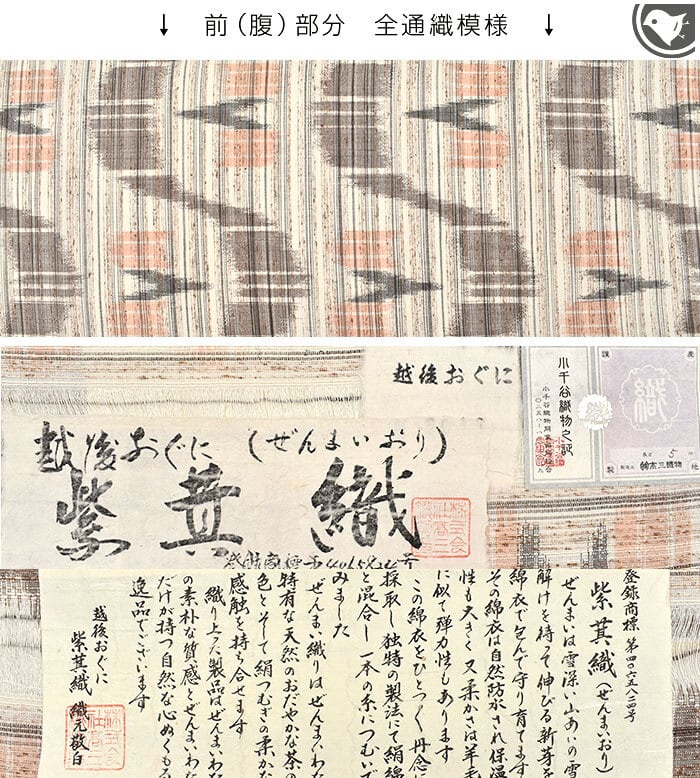 ↓ 前（腹）部分 全通織模様 ↓
越後おぐに
小千谷織物之証
織
長さ 5 m
製造元 ㈱高三織物
越後おぐに（ぜんまいおり）
紫萁織
登録商標 第四〇六五八二四号
紫萁織（ぜんまいおり）
ぜんまいは雪深い山あいの雪
解けを待って伸びる新芽を
綿衣で包んで守り育てます
その綿衣は自然防水され保湿
性も大きく又柔かさは羊毛
に似て弾力性もあります
この綿衣をひとつ〱丹念に
採取し独特の製法にて絹綿
と混合し一本の糸につむいで
みました
ぜんまい織りはぜんまいわた
特有な天然のおだやかな茶の
色とそして絹つむぎの柔かな
感触を持ち合せます
織り上った製品はぜんまいわた
の素朴な質感とぜんまいわた
だけが持つ自然な心ぬくもる
逸品でございます
越後おぐに
紫萁織 織元敬白